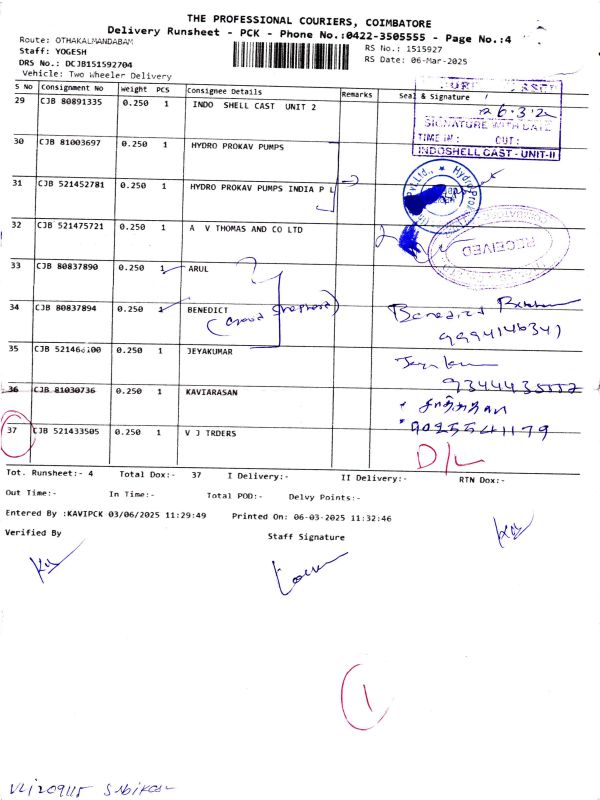 THE PROFESSIONAL COURIERS, COIMBATORE
Delivery Runsheet - PCK - Phone No.:0422-3505555 - Page No.:4
Route: OTHAKALMANDABAM
RS No.: 1515927
Staff: YOGESH
RS Date: 06-Mar-2025
DRS No.: DCJB151592704
Vehicle: Two Wheeler Delivery
S No Consignment No Weight PCS Consignee Details Remarks Seal & Signature
29 CJB 80891335 0.250 1 INDO SHELL CAST UNIT 2
SIGNATURE WITH DATE
TIME IN : OUT :
INDOSHELL CAST - UNIT-II
30 CJB 81003697 0.250 1 HYDRO PROKAV PUMPS
31 CJB 521452781 0.250 1 HYDRO PROKAV PUMPS INDIA P L
32 CJB 521475721 0.250 1 A V THOMAS AND CO LTD
RECEIVED
33 CJB 80837890 0.250 1 ARUL
34 CJB 80837894 0.250 1 BENEDICT
(Good Shepherd)
Benedict
9994146341
35 0.250 1 JEYAKUMAR
36 CJB 81030736 0.250 1 KAVIARASAN
37 CJB 521433505 0.250 1 V J TRDERS
D/L
Tot. Runsheet:- 4 Total Dox:- 37 I Delivery:- II Delivery:- RTN Dox:-
Out Time:- In Time:- Total POD:- Delvy Points:-
Entered By :KAVIPCK 03/06/2025 11:29:49 Printed On: 06-03-2025 11:32:46
Verified By
Staff Signature
1